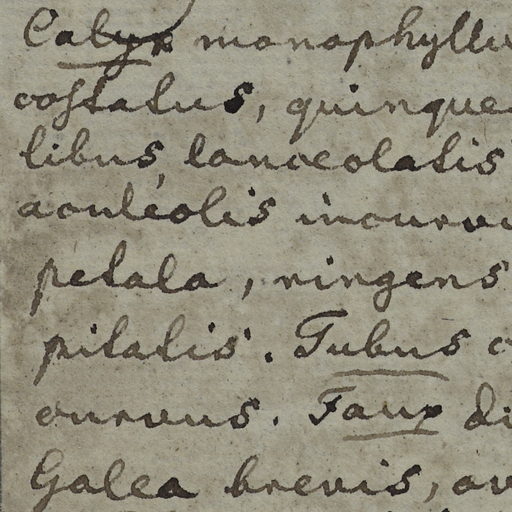 Calyx monophyllu
costatus, quinque
libus, lanceolatis
aculeolis incurvi
petala, ringens
pilatis. Tubus c
curvus. Faux di
Galea brevis, ov